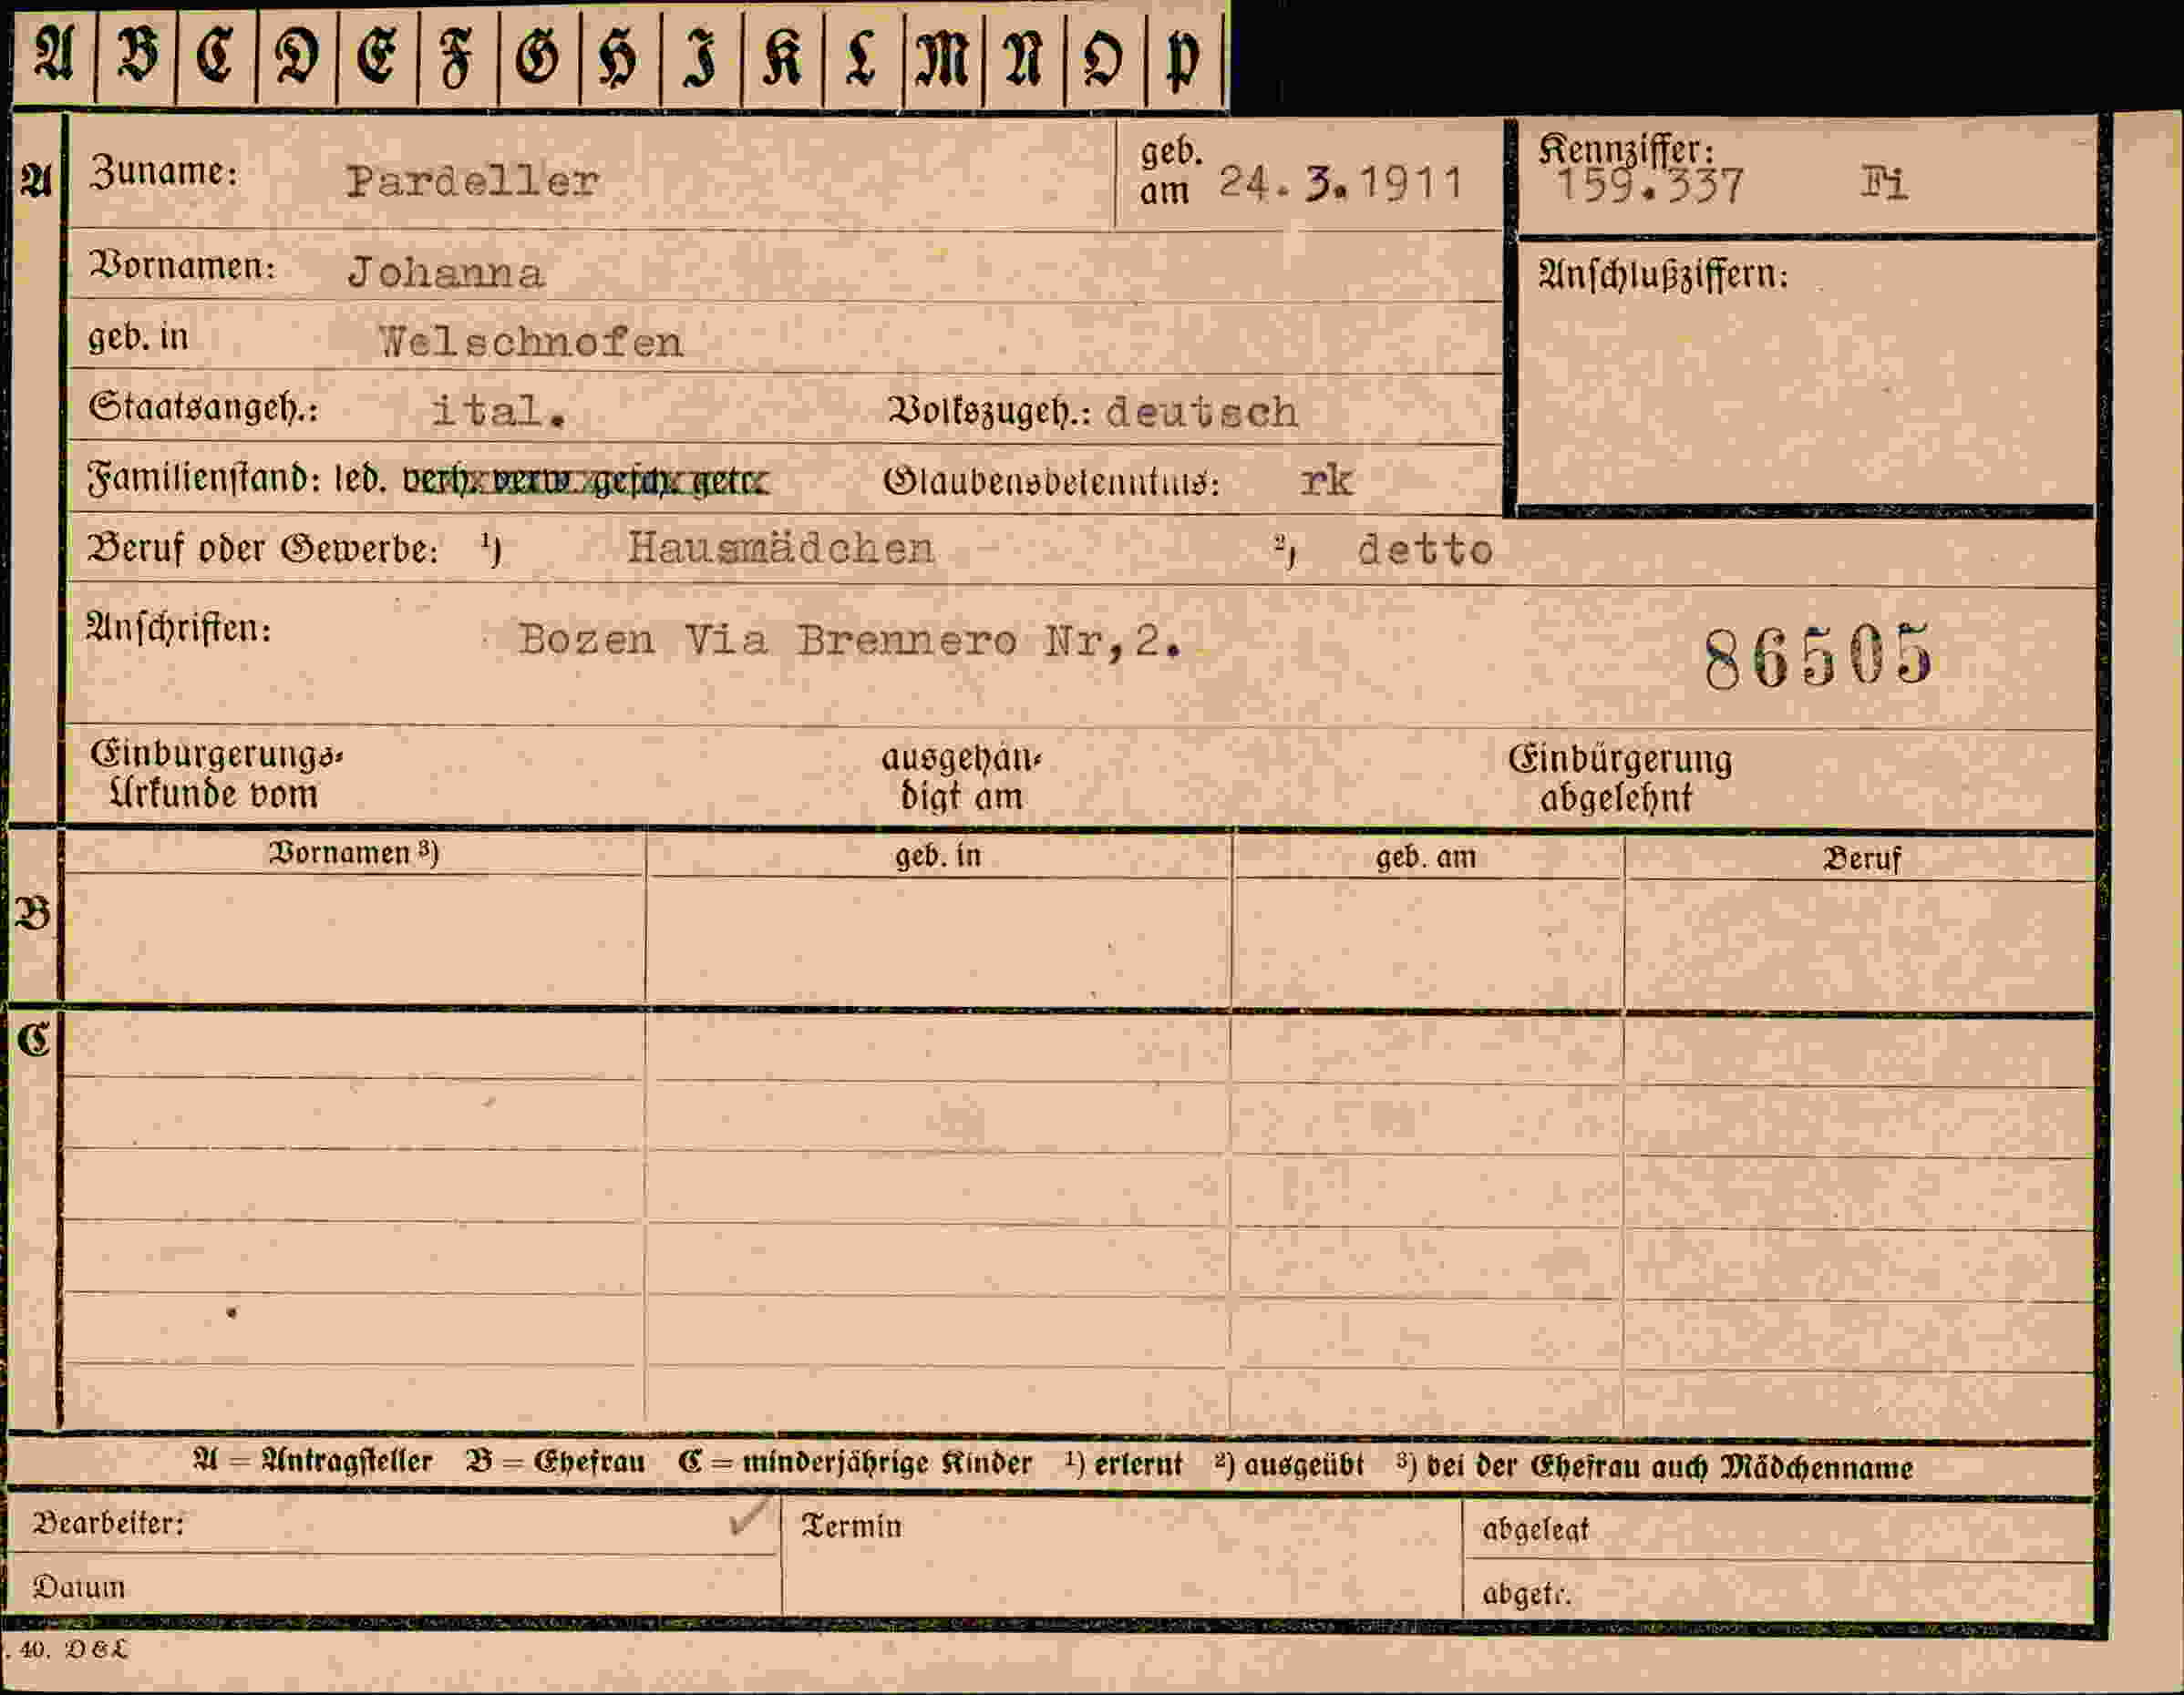 A B C D E F G H I K L M N O P
A Zuname: Pardeller geb. am 24.3.1911 Kennziffer: 159.337 Fi
Vornamen: Johanna Anschlußziffern:
geb. in Welschnofen
Staatsangeh.: ital. Volkszugeh.: deutsch
Familienstand: led. verh. verw. gesch. getr. Glaubensbekenntnis: rk
Beruf oder Gewerbe: ¹) Hausmädchen ²) detto
Anschriften: Bozen Via Brennero Nr,2. 86505
Einbürgerungs- ausgehän- Einbürgerung
Urkunde vom digt am abgelehnt
Vornamen ³) geb. in geb. am Beruf
B
C
A = Antragsteller B = Ehefrau C = minderjährige Kinder ¹) erlernt ²) ausgeübt ³) bei der Ehefrau auch Mädchenname
Bearbeiter: Termin abgelegt
Datum abgetr.
. 40. D